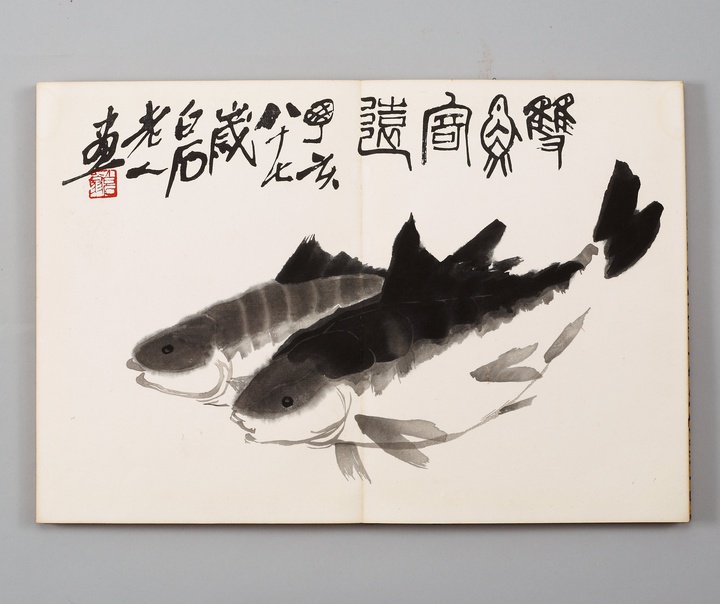 雙魚寄遠
亥八十七歲白石老人畫